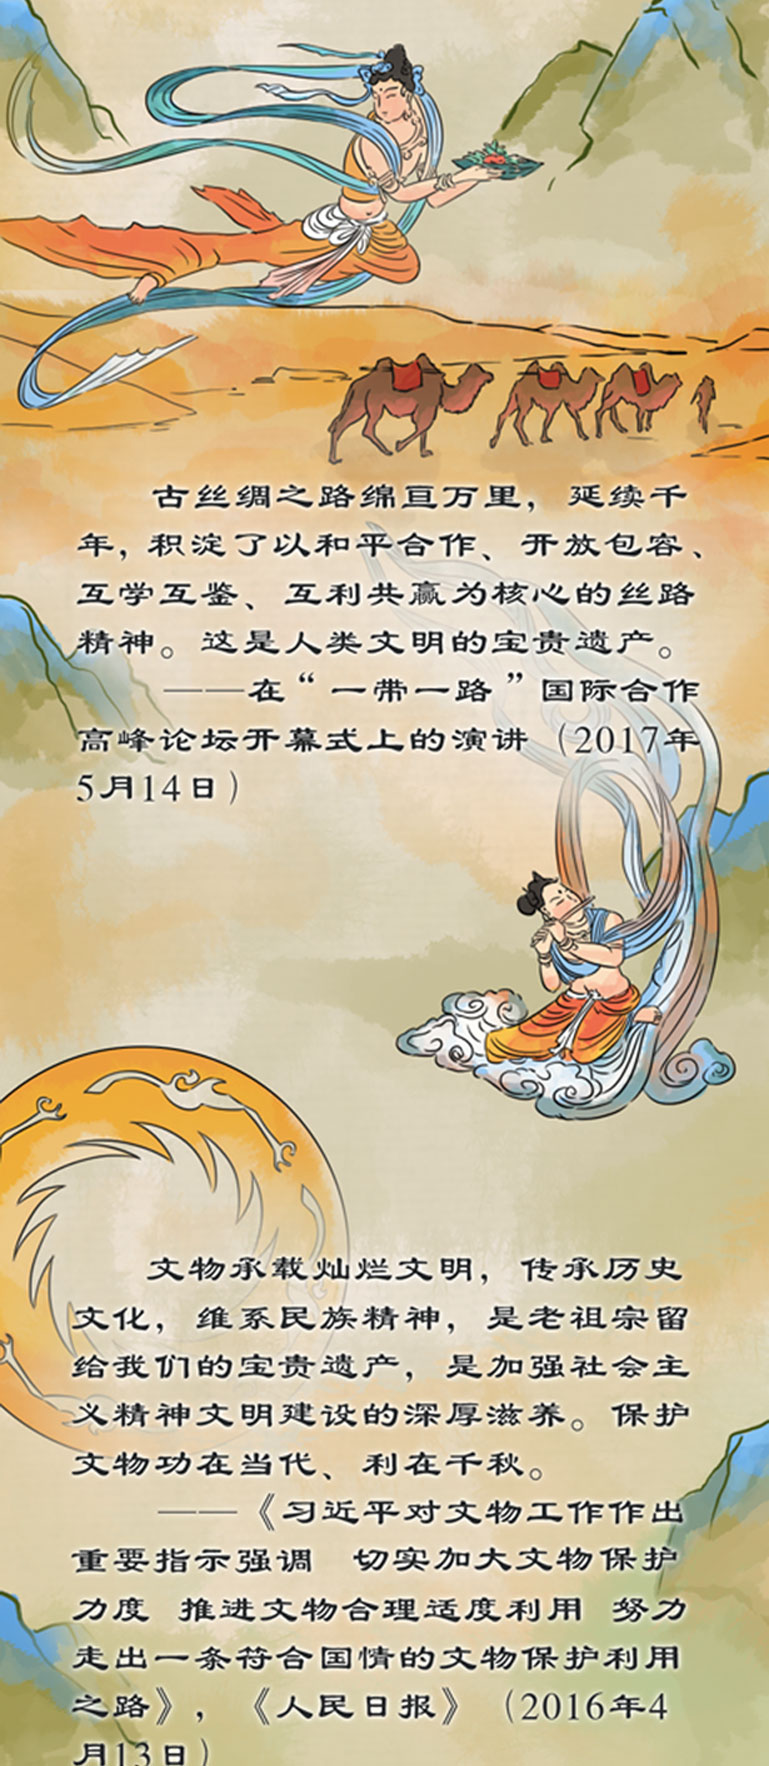 古丝绸之路绵亘万里，延续千
年，积淀了以和平合作、开放包容、
互学互鉴、互利共赢为核心的丝路
精神。这是人类文明的宝贵遗产。
——在“一带一路”国际合作
高峰论坛开幕式上的演讲（2017年
5月14日）
文物承载灿烂文明，传承历史
文化，维系民族精神，是老祖宗留
给我们的宝贵遗产，是加强社会主
义精神文明建设的深厚滋养。保护
文物功在当代、利在千秋。
——《习近平对文物工作作出
重要指示强调 切实加大文物保护
力度 推进文物合理适度利用 努力
走出一条符合国情的文物保护利用
之路》，《人民日报》（2016年4
月13日）